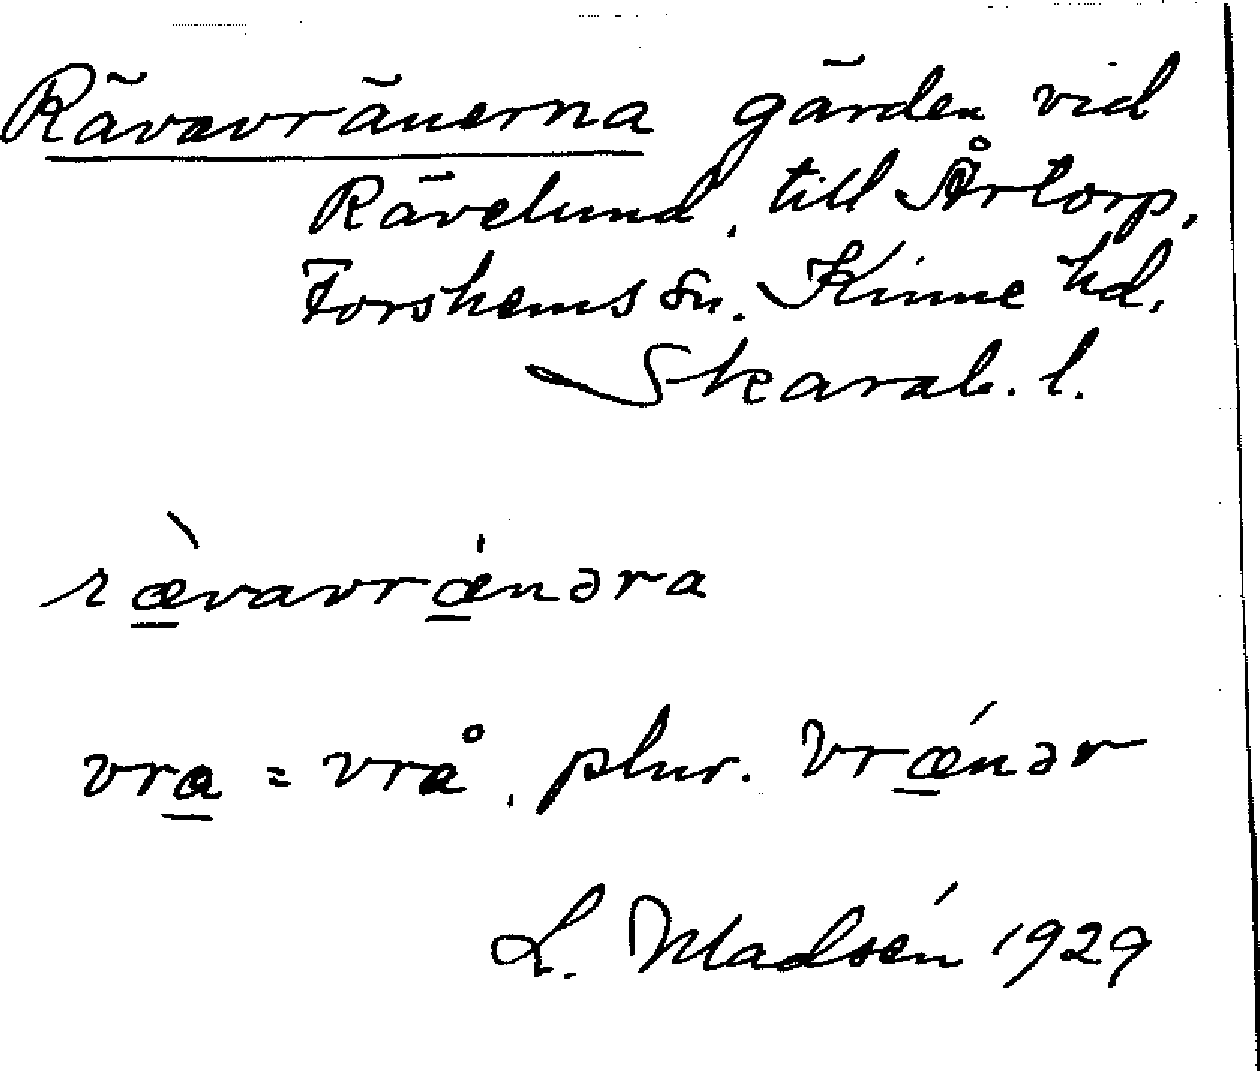 Rävavränerna gärden vid
Rävelund, till Årtorp,
Forshems sn. Kinne hd,
Skarab. l.
ræ̀vavræ̍nəra
vra = vrå, plur. vrǽnər
L. Madsén 1929